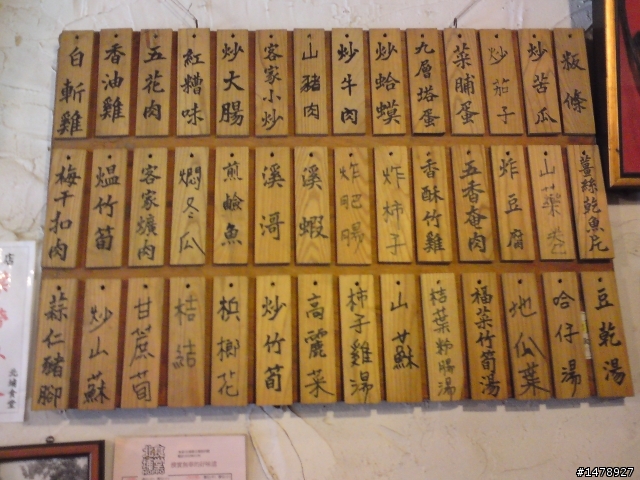 白斬雞
香油雞
五花肉
紅糟味
炒大腸
客家小炒
山豬肉
炒牛肉
炒蛤蟆
九層塔蛋
菜脯蛋
炒茄子
炒苦瓜
粄條
梅干扣肉
熅竹筍
客家爌肉
燜冬瓜
煎鹼魚
溪哥
溪蝦
炸肥腸
炸柿子
香酥竹雞
五香奄肉
炸豆腐
山藥卷
薑絲鮑魚片
蒜仁豬腳
炒山蘇
甘蔗荀
桔結
梹榔花
炒竹筍
高麗菜
柿子雞湯
山蘇
桔葉粉腸湯
福菜竹筍湯
地瓜葉
哈仔湯
豆乾湯
店
北埔食堂
#1478927